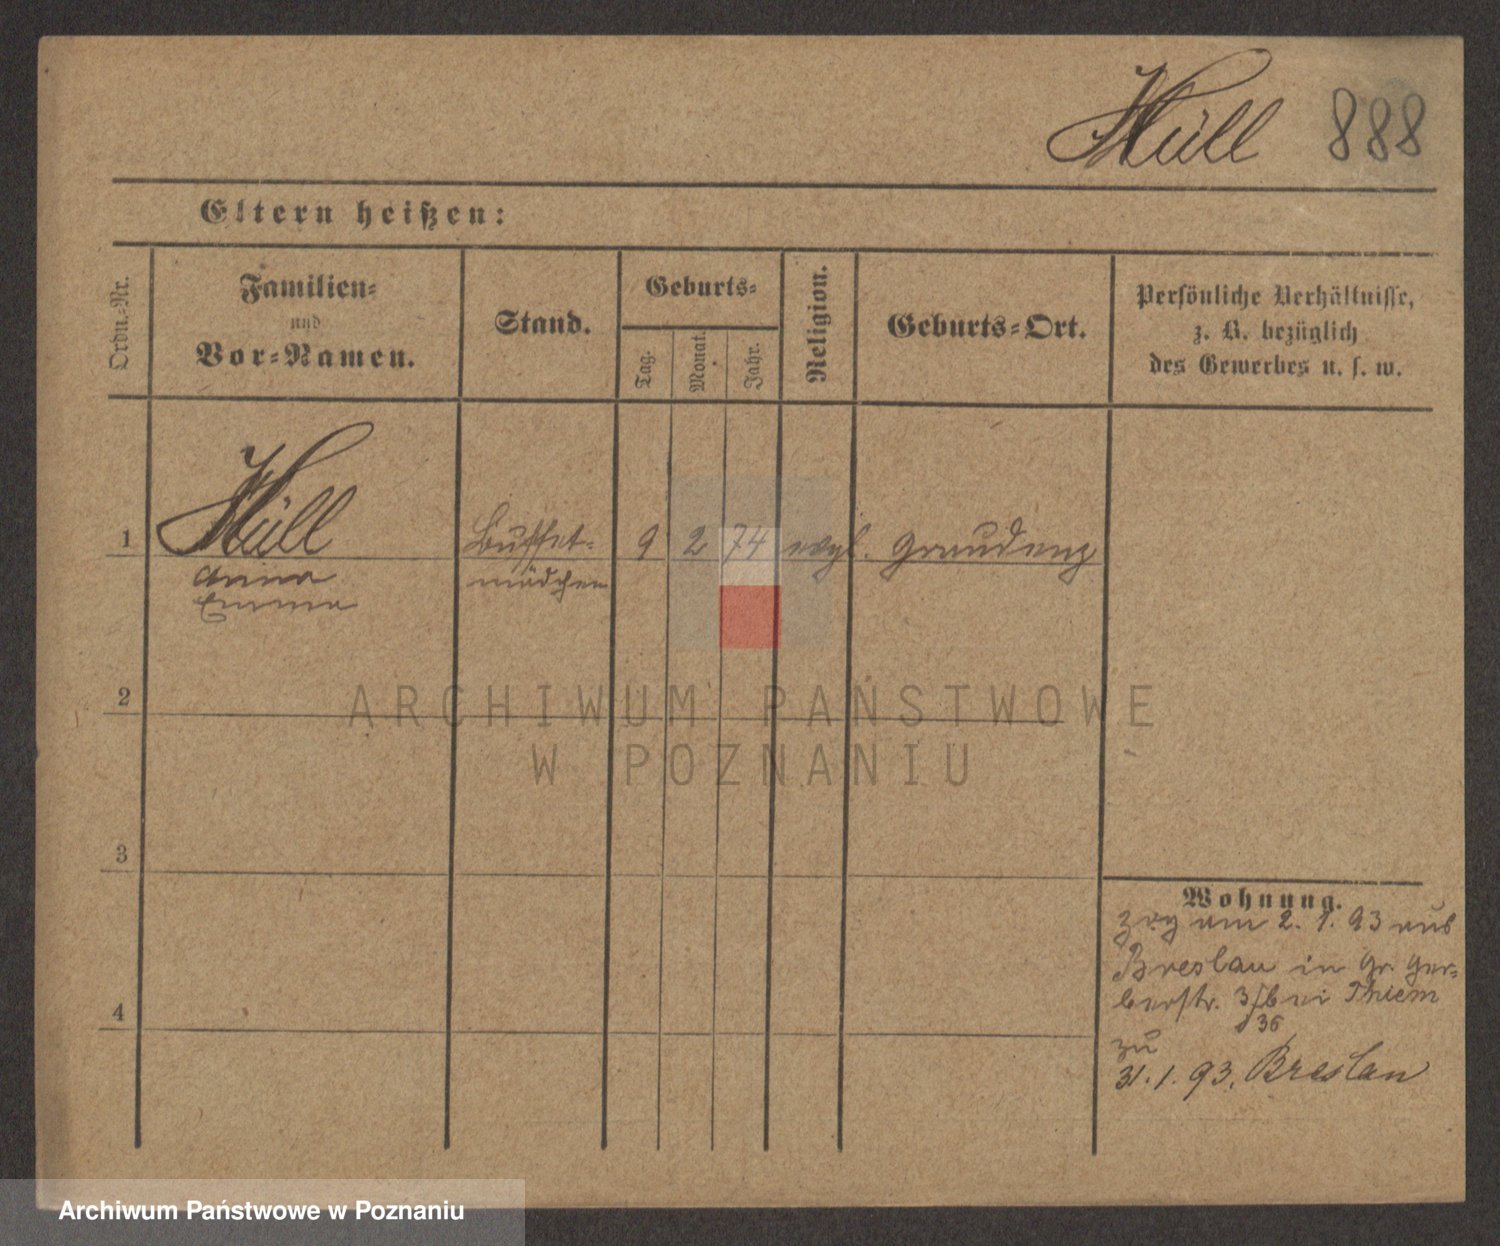 Hüll 888
Eltern heißen:
Ordn.-Nr.
Familien-
und
Vor-Namen.
Stand.
Geburts-
Tag.
Monat.
Jahr.
Religion.
Geburts-Ort.
Persönliche Verhältnisse,
z. B. bezüglich
des Gewerbes u. s. w.
Hüll
1 Buffet- 9 2 74 evgl. Graudenz
Anna mädchen
Emma
2
ARCHIWUM PAŃSTWOWE
W POZNANIU
3
Wohnung.
zog am 2. 1. 93 aus
Breslau in Gr. Ger-
berstr. 3 bei Thiem
36
zu
31. 1. 93. Breslau
4
Archiwum Państwowe w Poznaniu